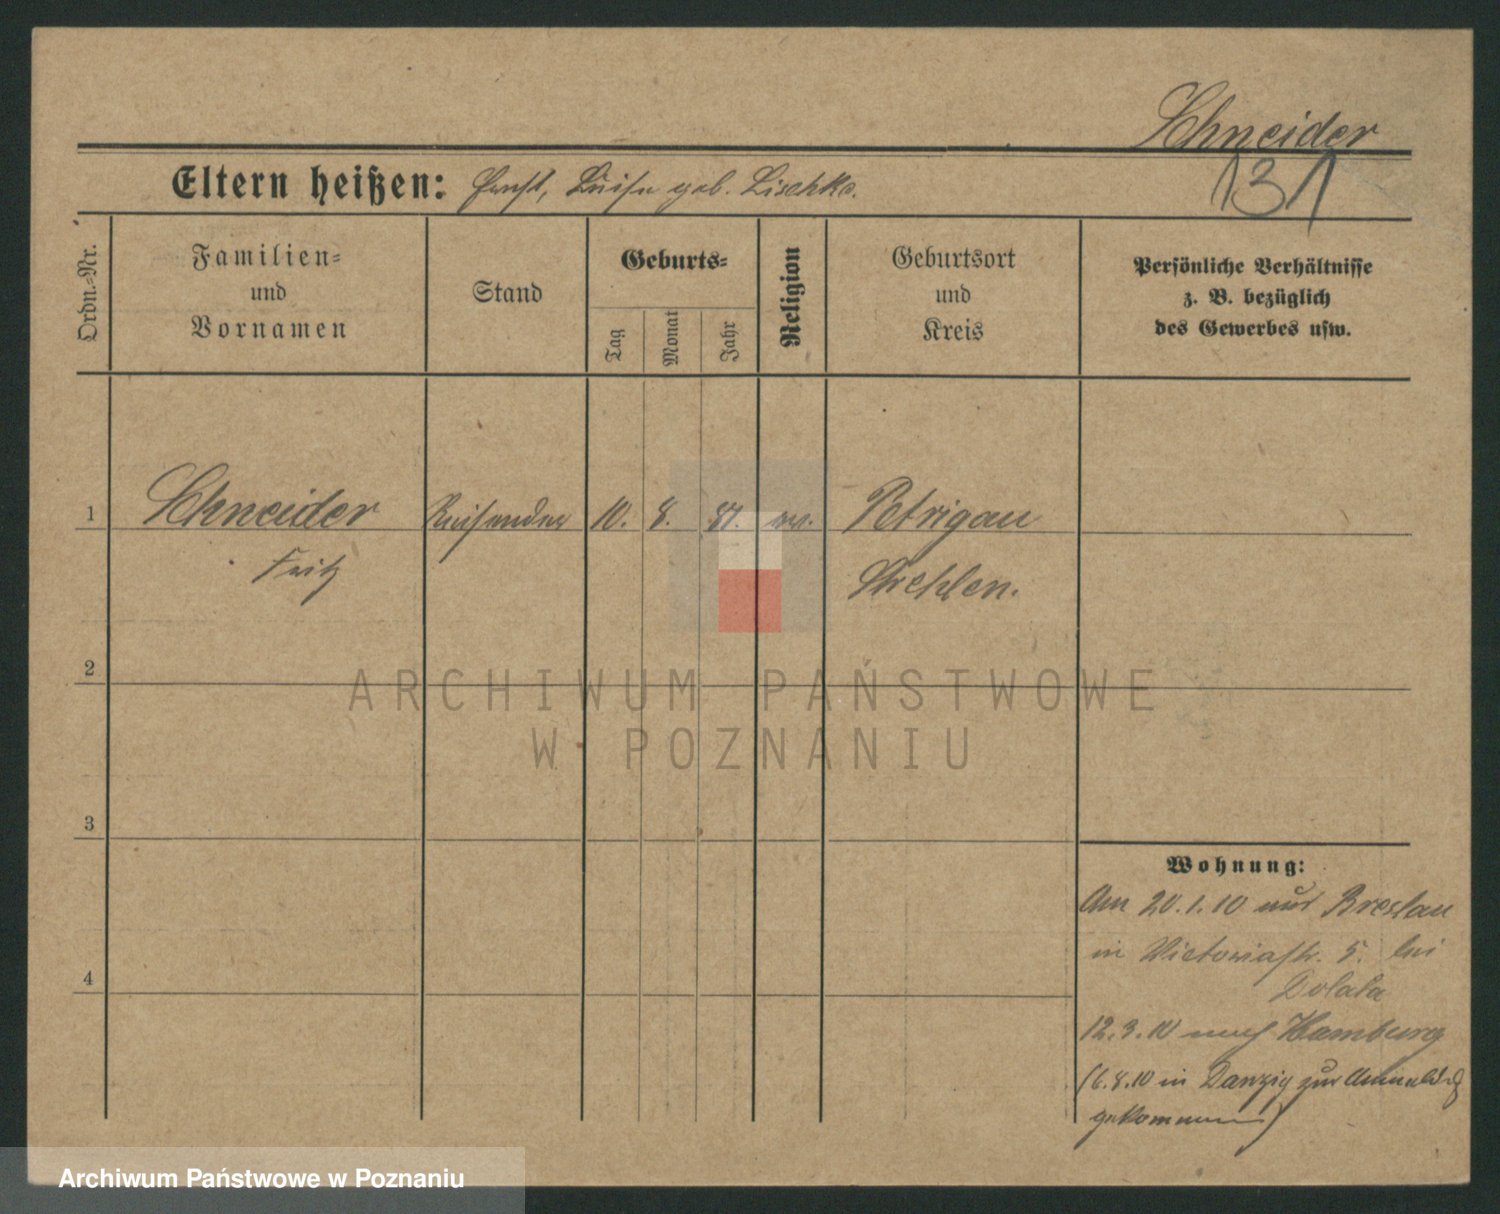 Schneider
131
Eltern heißen: Ernst, Luise geb. Lischke.
Ordn.-Nr.
Familien-
und
Vornamen
Stand
Geburts-
Tag
Monat
Jahr
Religion
Geburtsort
und
Kreis
Persönliche Verhältnisse
z. B. bezüglich
des Gewerbes usw.
1 Schneider Reisender 10. 8. 87. ev. Petrigau
Fritz Strehlen.
2
3
4
Wohnung:
Am 20.1.10 aus Breslau
in Victoriastr. 5. bei
Dolata
12.3.10 nach Hamburg
(6.8.10 in Danzig zur
gekommen)
ARCHIWUM PAŃSTWOWE
W POZNANIU
Archiwum Państwowe w Poznaniu